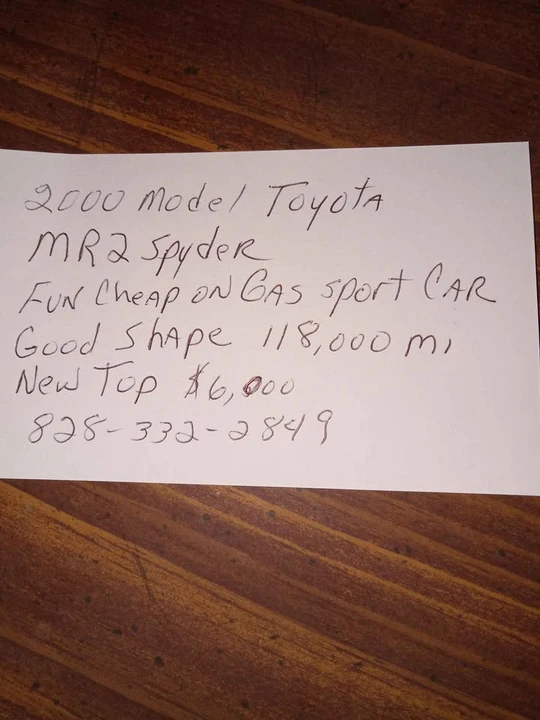 2000 Model Toyota
MR2 Spyder
Fun Cheap on Gas sport Car
Good Shape 118,000 mi
New Top $6,000
828-332-2849